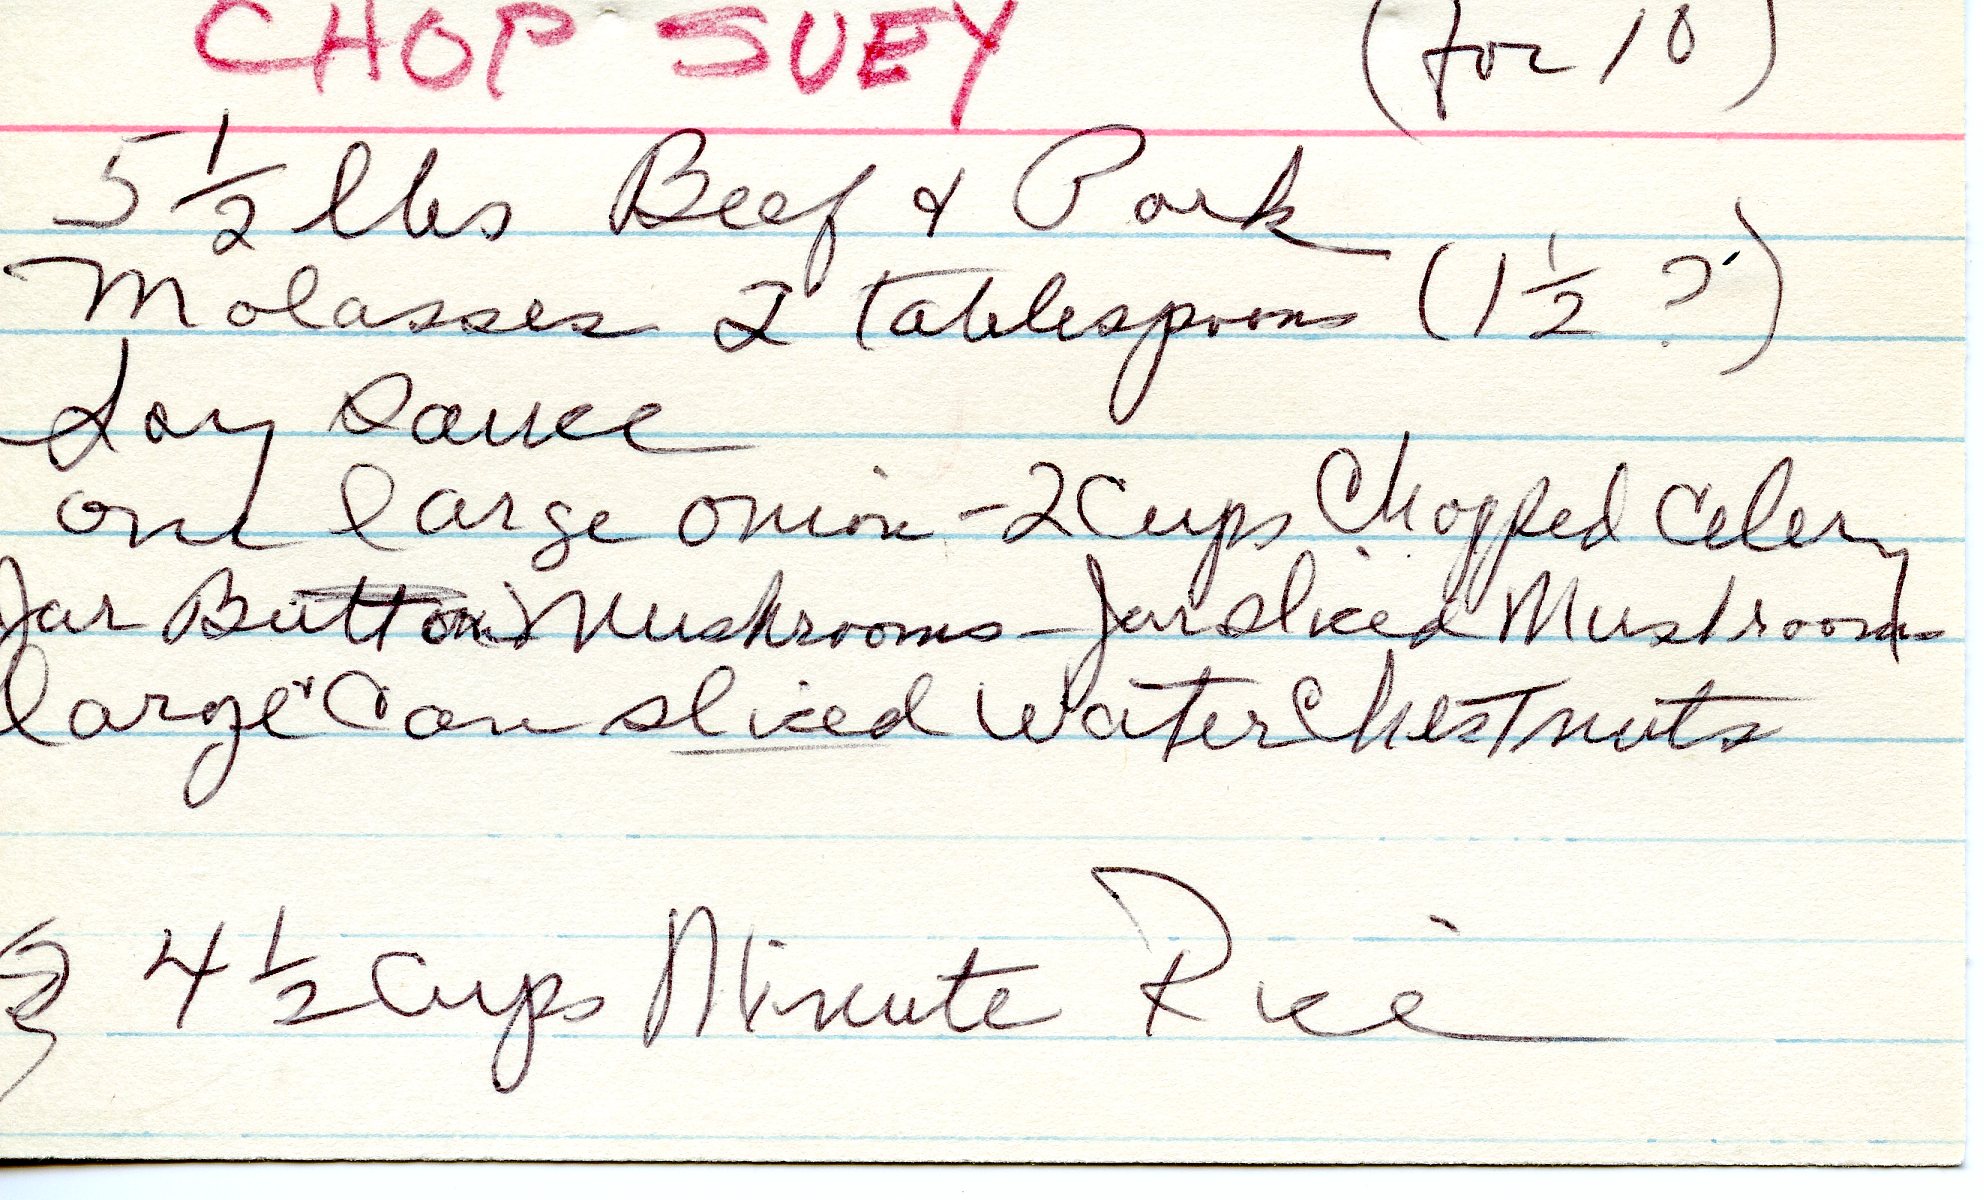 CHOP SUEY (for 10)
5 1/2 lbs Beef & Pork
Molasses 2 tablespoons (1 1/2 ?)
Soy Sauce
one large onion - 2 Cups Chopped Celery
Jar Button Mushrooms - Jar sliced Mushrooms
large Can sliced Water Chestnuts
4 1/2 Cups Minute Rice